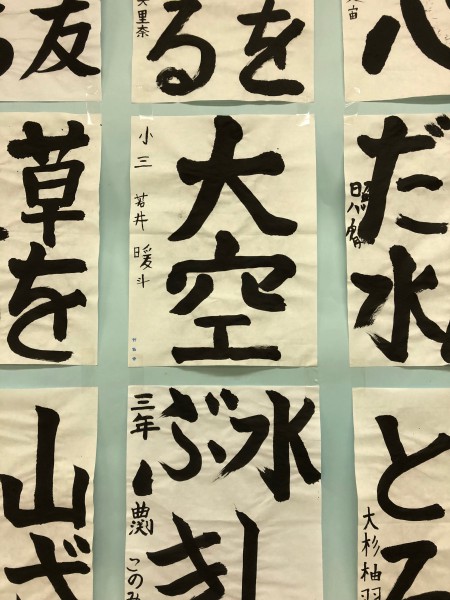 友
る
を
美里奈
宙
草を
大空
小三 若井 暖斗
だ水
山ざ
水
ぶき
三年
このみ
とる
大杉柚羽